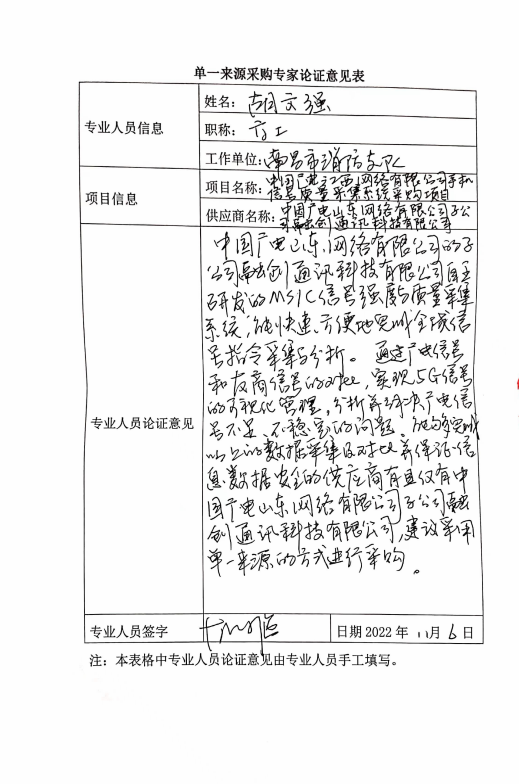 单一来源采购专家论证意见表
专业人员信息
姓名：胡文强
职称：高工
工作单位：南昌市消防支队
项目信息
项目名称：中国广电江西网络有限公司手机
信息质量采集系统采购项目
供应商名称：中国广电山东网络有限公司子公
司融创通讯科技有限公司
专业人员论证意见
中国广电山东网络有限公司的子
公司融创通讯科技有限公司自主
研发的MSIC信号强度与质量采集
系统，能快速、方便地实现全域信
号指令采集与分析。通过广电信号
和友商信号的对比，实现5G信号
的可视化管理，分析并解决广电信
号不足、不稳定的问题。能够实现
以上的数据采集及对比并保证信
息数据安全的供应商有且仅有中
国广电山东网络有限公司子公司融
创通讯科技有限公司，建议采用
单一来源的方式进行采购。
专业人员签字
日期 2022 年 11月 6 日
注：本表格中专业人员论证意见由专业人员手工填写。